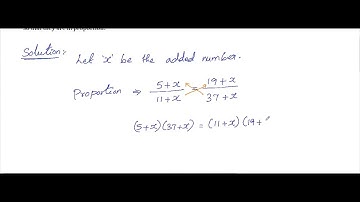 so that they are in proportion.
Solution:- Let 'x' be the added number.
Proportion ⇒ (5+x)/(11+x) = (19+x)/(37+x)
(5+x)(37+x) = (11+x)(19+